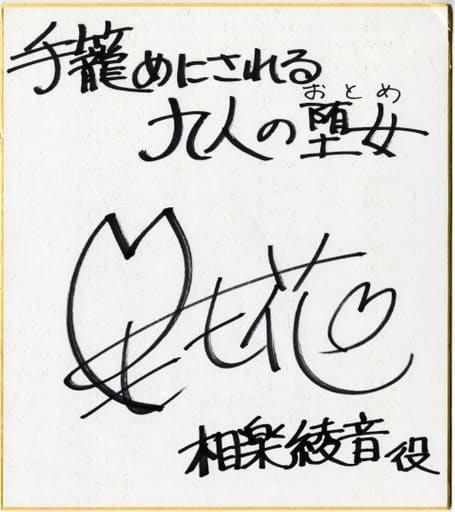 手籠めにされる
九人の堕女
おとめ
相楽綾音役